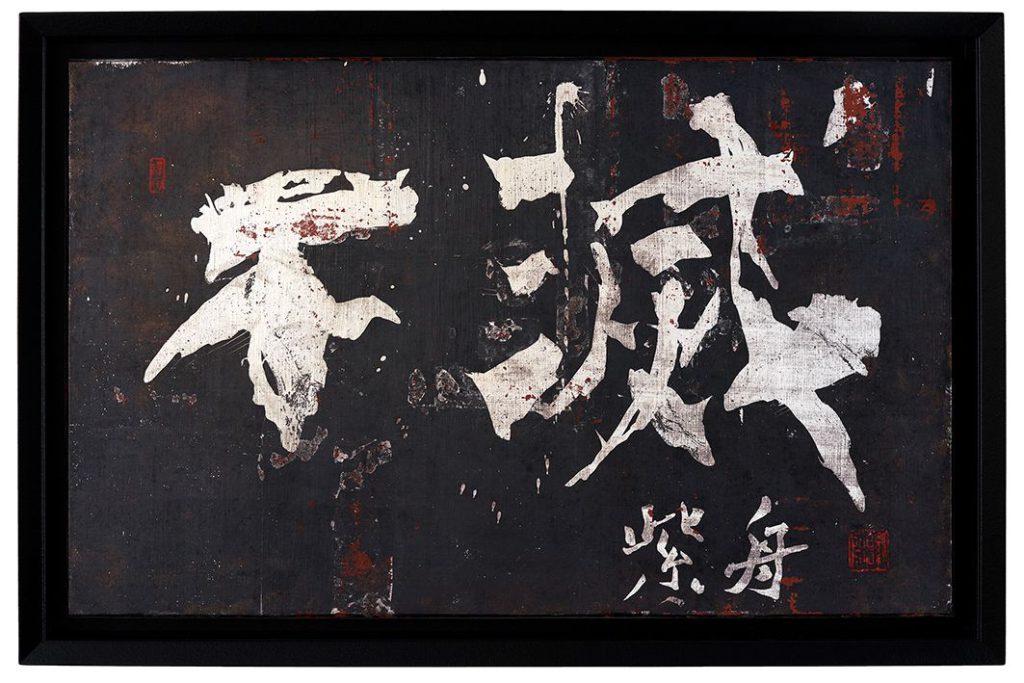 不滅
紫舟